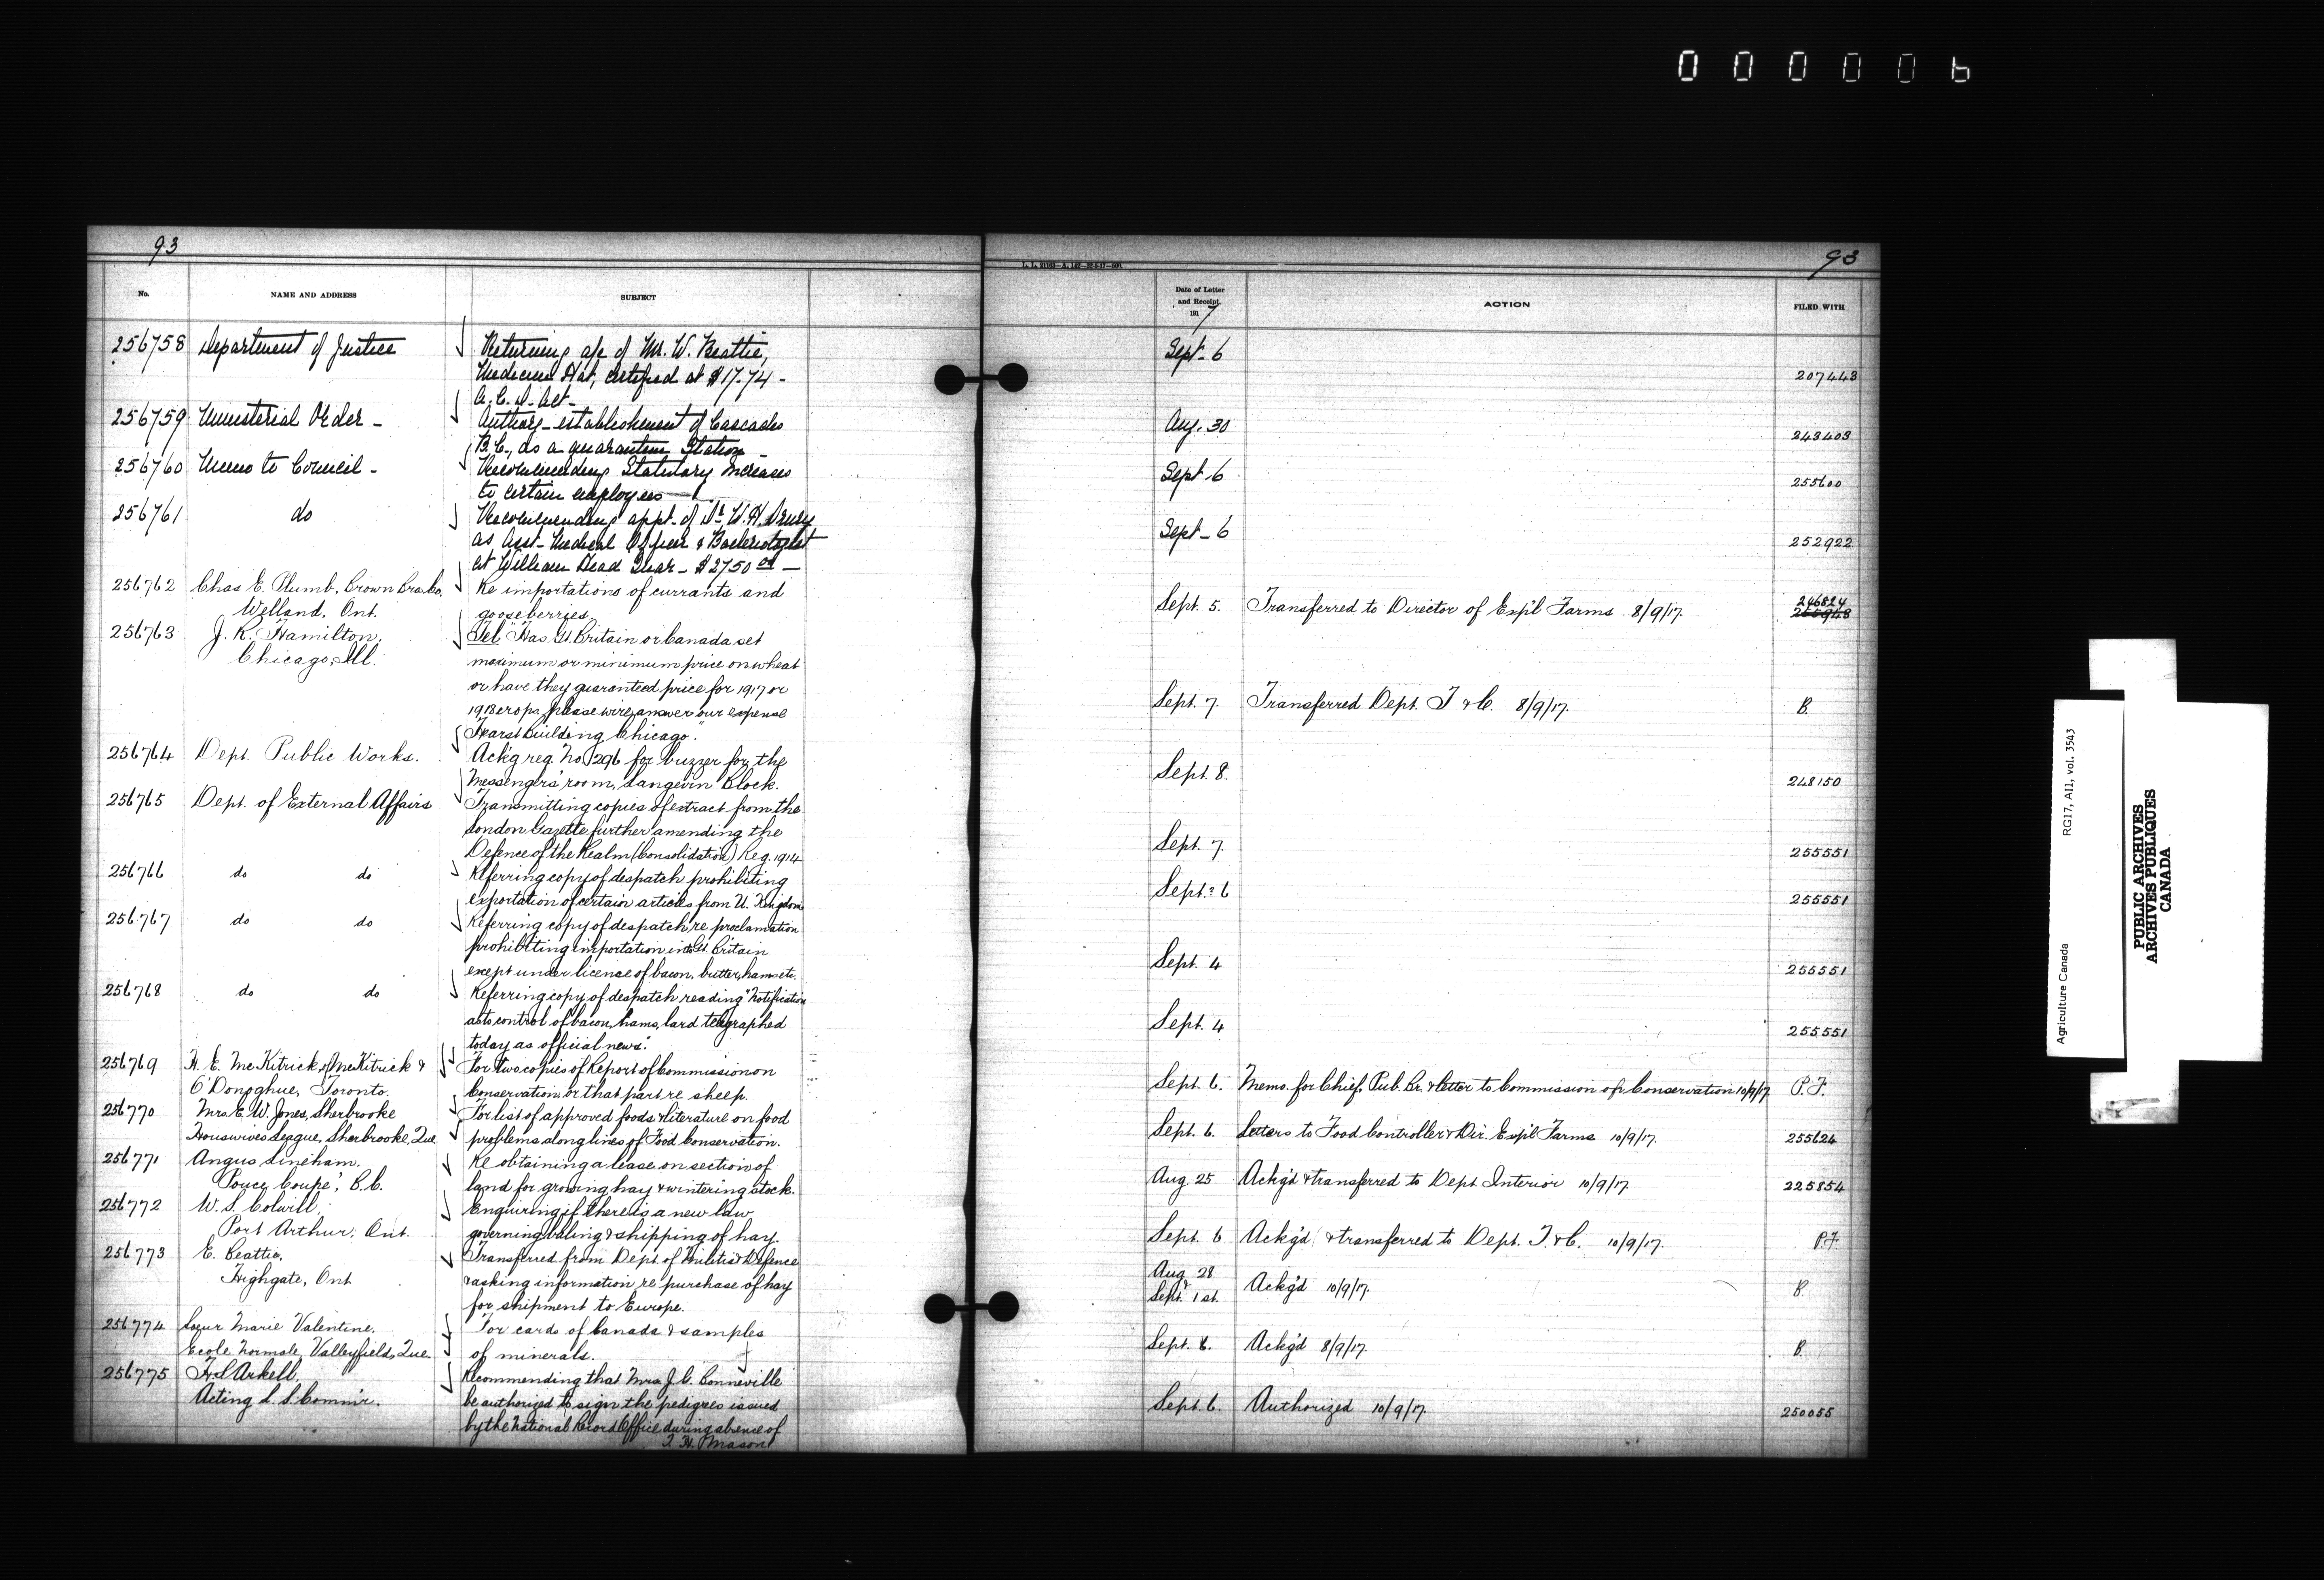 000006
93
No.
NAME AND ADDRESS
SUBJECT
256758 Department of Justice
Returning a/c of Mr. W. Beattie,
Medicine Hat, certified at $17.74 -
A. C. D. Act -
256759 Ministerial Order -
Authorg establishment of Cascades
B.C., as a quarantine Station -
256760 Memo to Council -
Recommending Statutory Increases
to certain employees
256761 do
Recommending appt. of Dr. W. H. Drury
as Asst. Medical Officer & Bacteriologist
at William Head Quar - $2750 00 -
256762 Chas E. Plumb, Crown Bra. Co.
Welland, Ont.
Re importations of currants and
gooseberries.
256763 J. K. Hamilton,
Chicago, Ill.
Tel "Has Gt. Britain or Canada set
maximum or minimum price on wheat
or have they guaranteed price for 1917 or
1918 crops please wire answer our expense
Hearst Building Chicago."
256764 Dept. Public Works.
Ack'g reg. No. 1296 for buzzer for the
Messengers' room, Langevin Block.
256765 Dept. of External Affairs
Transmitting copies of extract from the
London Gazette further amending the
Defence of the Realm (Consolidation) Reg. 1914
256766 do do
Referring copy of despatch prohibiting
exportation of certain articles from U. Kingdom
256767 do do
Referring copy of despatch, re proclamation
prohibiting importation into Gt. Britain
except under licence of bacon, butter, hams etc.
256768 do do
Referring copy of despatch reading "Notification
as to control of bacon, hams, lard telegraphed
today as official news".
256769 H. E. McKitrick, of McKitrick &
O'Donoghue, Toronto.
For two copies of Report of Commission on
Conservation or that part re sheep.
256770 Mrs. E. W. Jones, Sherbrooke
Housewives League, Sherbrooke, Que
For list of approved foods & literature on food
problems along lines of Food Conservation.
256771 Angus Lineham.
Pouce Coupe, B.C.
Re obtaining a lease on section of
land for growing hay & wintering stock.
256772 W. S. Colwill,
Port Arthur, Ont.
Enquiring if there is a new law
governing baling & shipping of hay.
256773 E. Beattie,
Highgate, Ont
Transferred from Dept. of Militia & Defence
& asking information re purchase of hay
for shipment to Europe.
256774 Soeur Marie Valentine.
Ecole Normale, Valleyfield, Que.
For cards of Canada & samples
of minerals.
256775 H. S. Arkell,
Acting L. S. Comm'r.
Recommending that Mrs. J. G. Bonneville
be authorized to sign the pedigrees issued
by the National Record Office during absence of
F. H. Mason
93
Date of Letter
and Receipt,
1917
ACTION
FILED WITH
Sept. 6 207443
Aug. 30 243403
Sept 6 255600
Sept - 6 252922
Sept. 5. Transferred to Director of Exp'l Farms 8/9/17. 246824
255948
Sept. 7. Transferred Dept. T & C. 8/9/17. B.
Sept. 8. 248150
Sept. 7. 255551
Sept. 6 255551
Sept. 4 255551
Sept. 4 255551
Sept. 6. Memo. for Chief, Pub. Br. & letter to Commission of Conservation 10/9/17. P.F.
Sept. 6. Letters to Food Controller & Dir. Exp'l Farms 10/9/17. 255624
Aug. 25 Ack'g'd & transferred to Dept. Interior 10/9/17. 225854
Sept. 6 Ack'g'd & transferred to Dept. T. & C. 10/9/17. P.F.
Aug. 28
&
Sept. 1st. Ack'g'd 10/9/17. B
Sept. 6. Ack'g'd 8/9/17. B.
Sept. 6. Authorized 10/9/17. 250055
Agriculture Canada RG17, AII, vol. 3543
PUBLIC ARCHIVES
ARCHIVES PUBLIQUES
CANADA